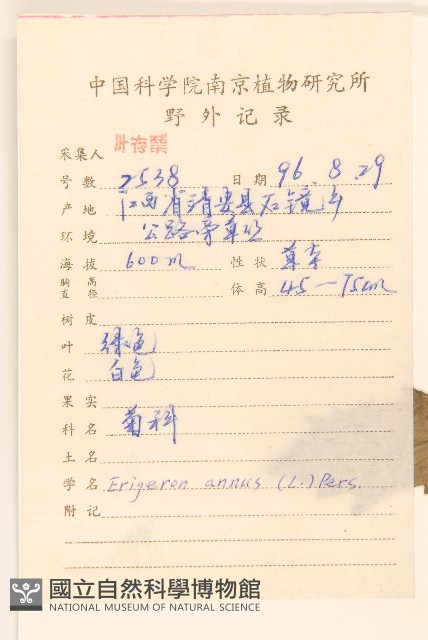 中国科学院南京植物研究所
野外记录
采集人 叶存粟
号数 2538 日期 96.8.29
产地 江西省靖安县石镜乡
环境 公路旁草丛
海拔 600m 性状 草本
胸高直径 体高 45—75cm
树皮
叶 绿色
花 白色
果实
科名 菊科
土名
学名 Erigeron annus (L.) Pers.
附记
國立自然科學博物館
NATIONAL MUSEUM OF NATURAL SCIENCE